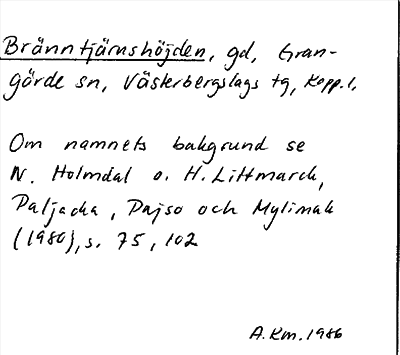 Bränntjärnshöjden, gd, Gran-
gärde sn, Västerbergslags tg, Kopp. l.
Om namnets bakgrund se
N. Holmdal o. H. Littmarck,
Paljacka, Pajso och Mylimak
(1980), s. 75, 102
A. Km. 1986